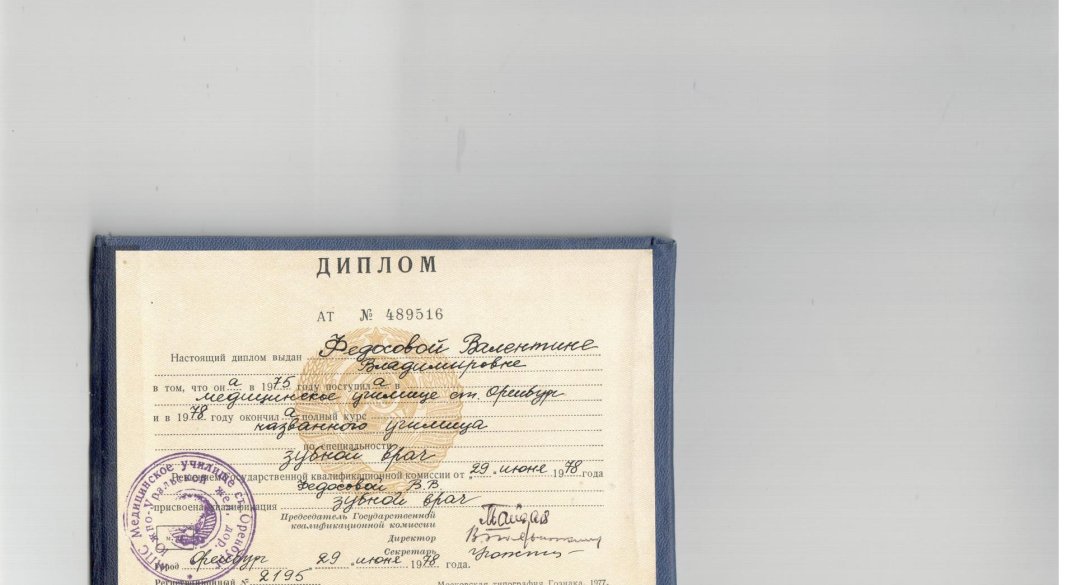 ДИПЛОМ
АТ № 489516
Настоящий диплом выдан Федосовой Валентине
Владимировне
в том, что он а в 1975 году поступил а в
медицинское училище ст. Оренбург
и в 1978 году окончил а полный курс
названного училища
по специальности
зубной врач
Решением Государственной квалификационной комиссии от „29 „ июне 1978 года
Федосовой В.В
присвоена квалификация зубной врач
Председатель Государственной
квалификационной комиссии
Директор
Секретарь
Город Оренбург „29 „ июне 1978 года.
Регистрационный № 2195
Московская типография Гознака. 1977.
МПС Медицинское училище ст. Оренбург
Южно-Уральской жел. дор.